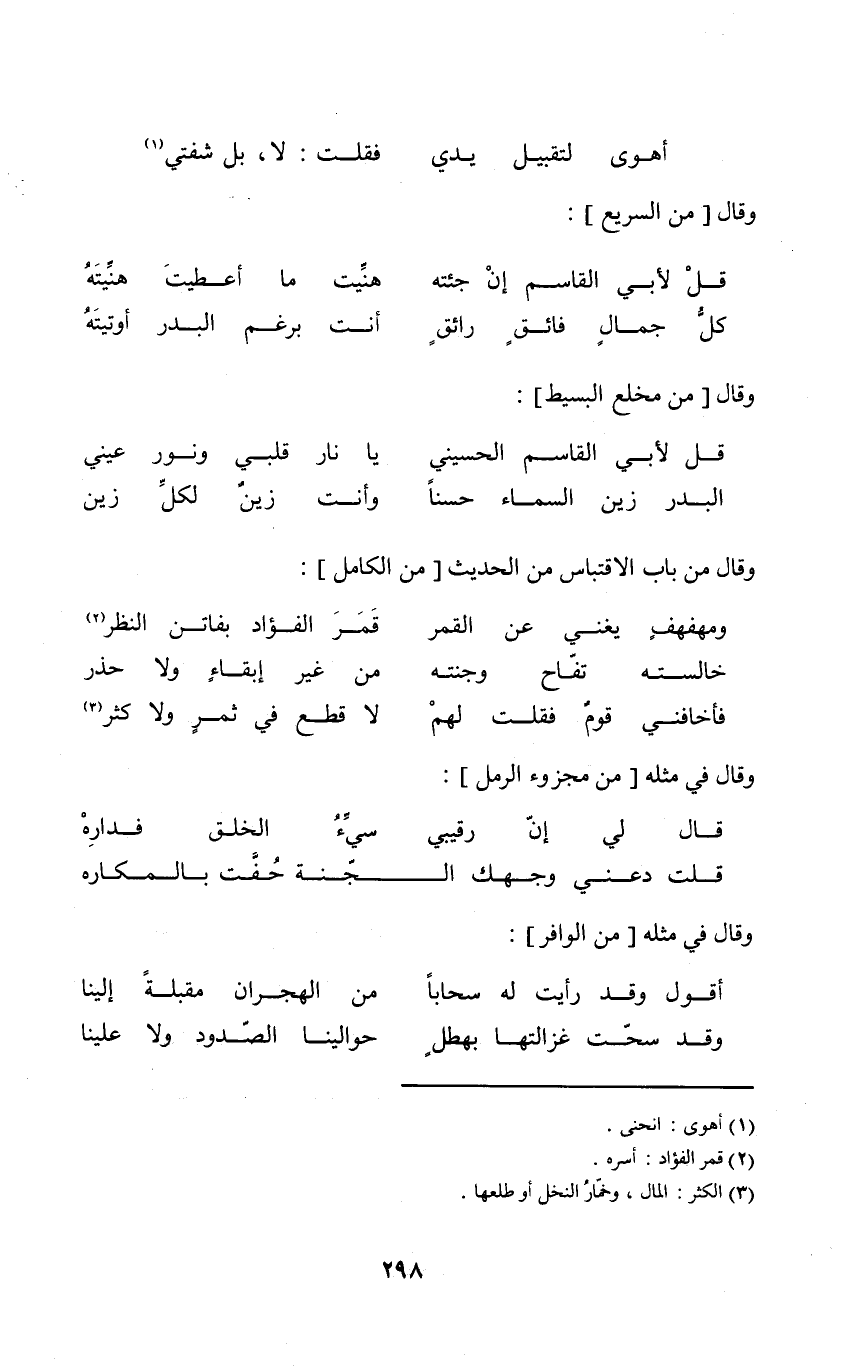 أهوى لتقبيل يدي فقلت : لا، بل شفتي(١)
وقال [ من السريع ] :
قلْ لأبي القاسم إنْ جئته هنِّيت ما أعطيتَ هنِّيتَهُ
كلُّ جمالٍ فائقٍ رائقٍ أنت برغم البدر أوتيتَهُ
وقال [ من مخلع البسيط] :
قل لأبي القاسم الحسيني يا نار قلبي ونور عيني
البدر زين السماء حسناً وأنت زينٌ لكلِّ زين
وقال من باب الاقتباس من الحديث [ من الكامل ] :
ومهفهفٍ يغني عن القمر قَمَرَ الفؤاد بفاتن النظر(٢)
خالسته تفّاح وجنته من غير إبقاءٍ ولا حذر
فأخافني قومٌ فقلت لهمْ لا قطع في ثمرٍ ولا كثر(٣)
وقال في مثله [ من مجزوء الرمل ] :
قال لي إنّ رقيبي سيِّءُ الخلق فدارِهْ
قلت دعني وجهك الـجّنة حُفَّت بالمكاره
وقال في مثله [ من الوافر] :
أقول وقد رأيت له سحاباً من الهجران مقبلةً إلينا
وقد سحّت غزالتها بهطلٍ حوالينا الصّدود ولا علينا
(١) أهوى : انحنى .
(٢) قمر الفؤاد : أسره .
(٣) الكثر : المال ، وجمّارُ النخل أو طلعها .
٢٩٨